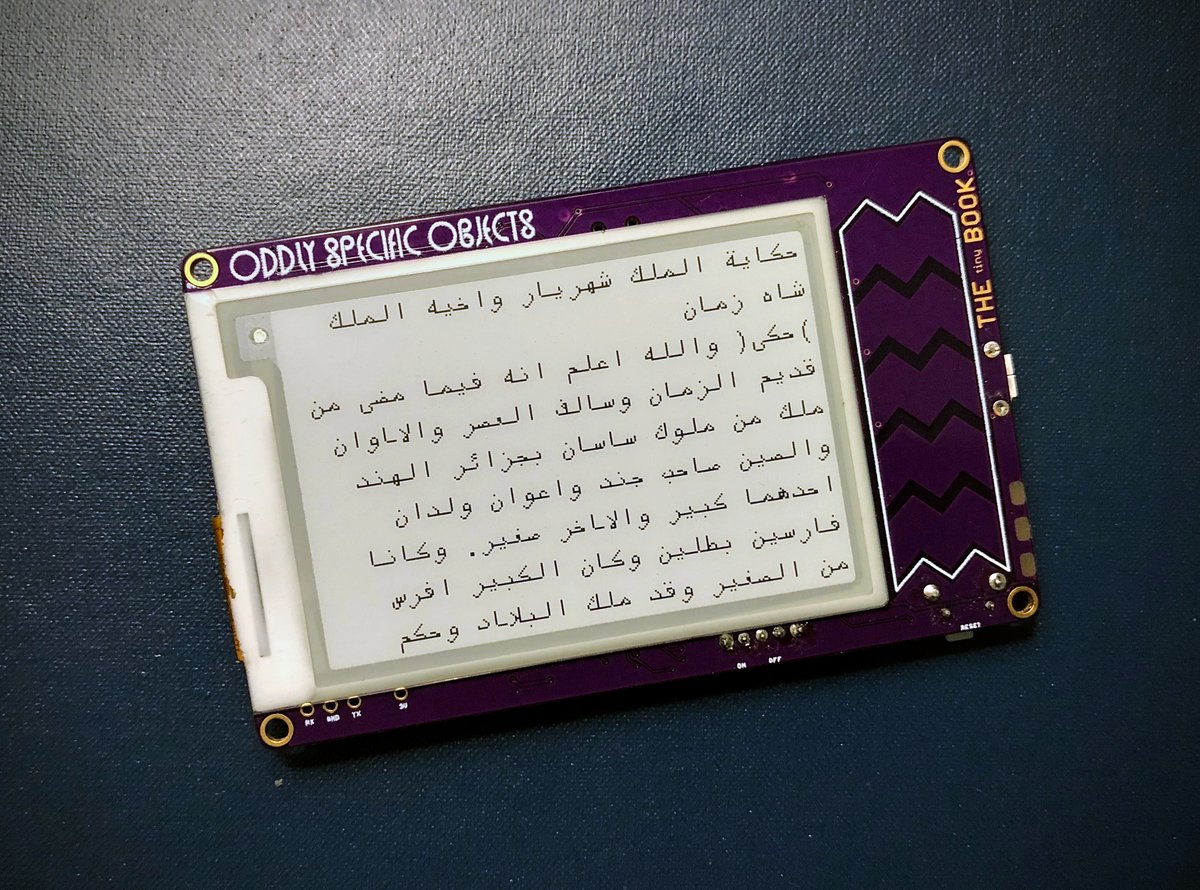 ODDLY SPECIFIC OBJECTS
THE tiny BOOK
حكاية الملك شهريار واخيه الملك
شاه زمان
)حكى( والله اعلم انه فيما مضى من
قديم الزمان وسالف العصر والاوان
ملك من ملوك ساسان بجزائر الهند
والصين صاحب جند واعوان ولدان
احدهما كبير والاخر صغير. وكانا
فارسين بطلين وكان الكبير افرس
من الصغير وقد ملك البلاد وحكم
RX GND TX 3V
ON OFF
RESET